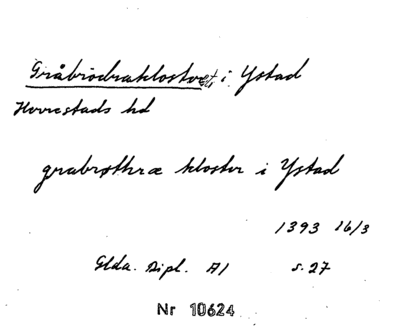 Gråbrödraklostret i Ystad
Herrestads hd
grabrøthræ kloster i Ystad
1393 16/3
Glda. Dipl. A1 s. 27
Nr 10624